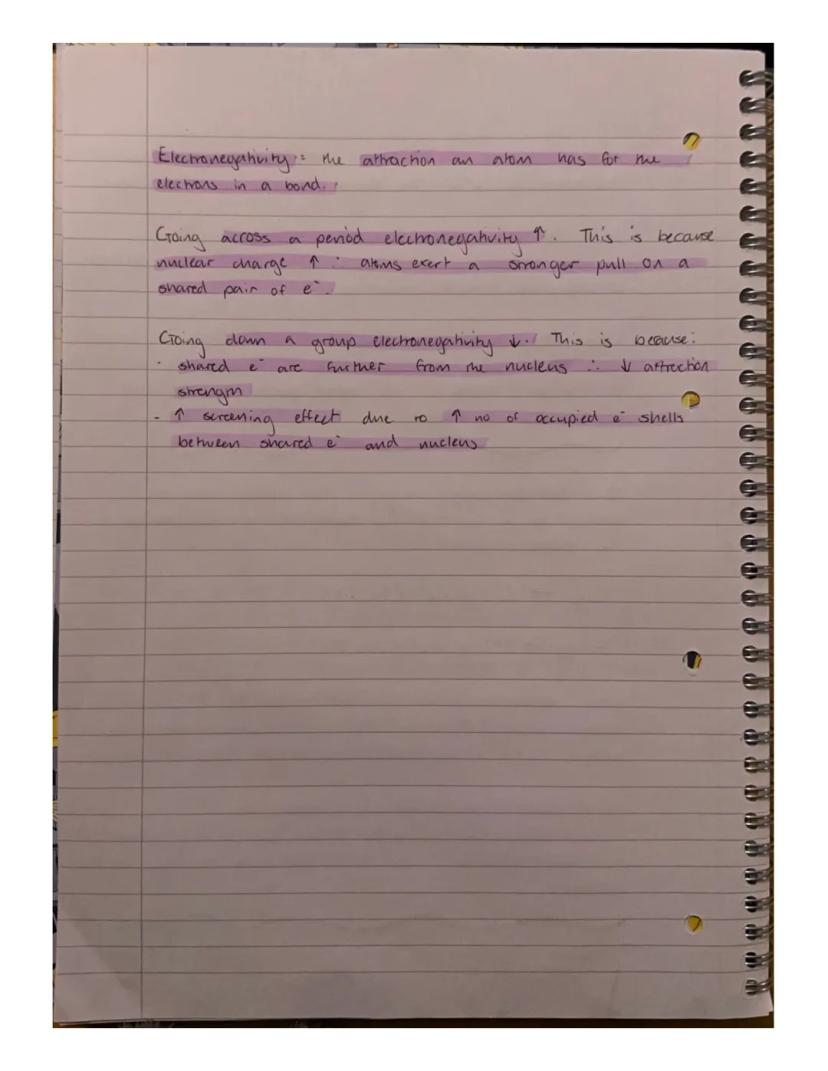 Electronegativity:= the attraction an atom has for the
electrons in a bond.
Going across a period electronegativity ↑. This is because
nuclear charge ↑ ∴ atoms exert a stronger pull on a
shared pair of e⁻.
Going down a group electronegativity ↓. This is because:
· shared e⁻ are further from the nucleus ∴ ↓ attraction
strength
- ↑ screening effect due to ↑ no of occupied e⁻ shells
between shared e⁻ and nucleus